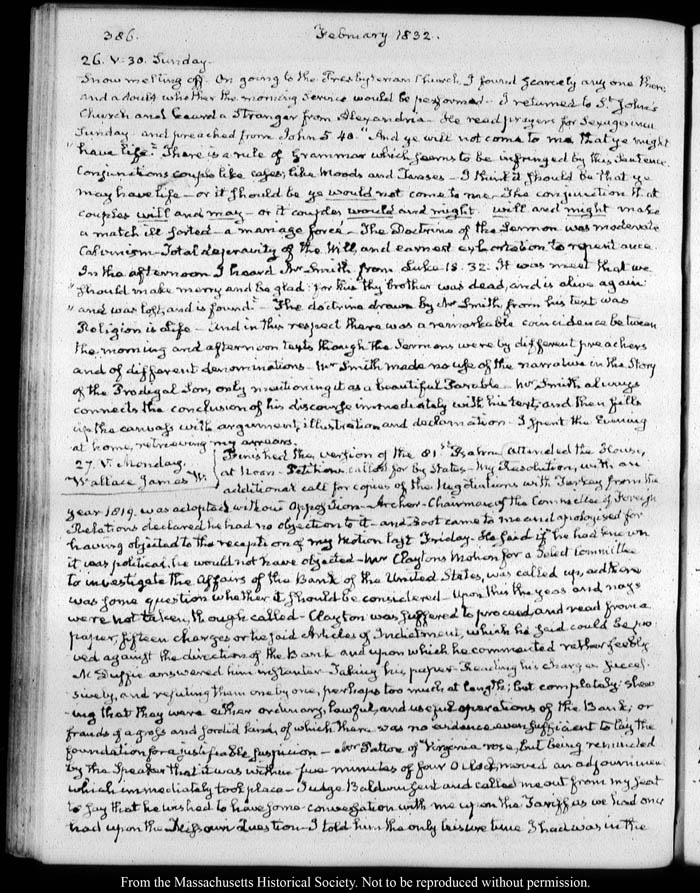 386.
February 1832.
26. V. 30. Sunday.
Snow melting off. On going to the Presbyterian Church, I found scarcely any one there,
and a doubt whether the morning service would be performed. I returned to St. John's
Church and heard a Stranger from Alexandria. He read prayers for Sexagesima
Sunday and preached from John 5. 40. "And ye will not come to me that ye might
"have life." There is a rule of Grammar which seems to be infringed by this sentence.
Conjunctions couple like cases, like Moods and Tenses. I think it should be that ye
may have life — or it should be ye would not come to me. The conjunction that
couples will and may — or it couples would and might. will and might make
a match ill sorted — a marriage force. The Doctrine of the Sermon was moderate
Calvinism. Total depravity of the Will, and earnest exhortation to repentance.
In the afternoon I heard Mr. Smith from Luke 15. 32. It was meet that we
"should make merry and be glad: for this thy brother was dead, and is alive again
"and was lost, and is found." The doctrine drawn by Mr. Smith from his text was
Religion is life — And in this respect there was a remarkable coincidence between
the morning and afternoon texts though the Sermons were by different preachers
and of different denominations. Mr. Smith made no use of the narrative in the Story
of the Prodigal Son, only mentioning it as a beautiful Parable. Mr. Smith always
connects the conclusion of his discourse immediately with his text, and then fills
up the canvass with argument, illustration and declamation. I spent the Evening
at home, retrieving my arrears.
27. V. Monday.
Wallace James W.
Finished the version of the 81st Psalm. Attended the House,
at Noon. Petitions called for by States. My Resolution, with an
additional call for copies of the Negotiations with Turkey from the
year 1819. was adopted without opposition. Archer, Chairman of the Committee of Foreign
Relations declared he had no objection to it — and Root came to me and apologised for
having objected to the reception of my Motion last Friday. He said if he had known
it was political, he would not have objected. Mr. Clayton's Motion for a Select Committee
to investigate the Affairs of the Bank of the United States, was called up, and there
was some question whether it should be considered. Upon this the yeas and nays
were not taken, though called. Clayton was suffered to proceed, and read from a
paper, fifteen charges or he said Articles of Indictment, which he said could be pro
ved against the direction of the Bank and upon which he commented rather feebly
McDuffie answered him instanter. Taking his paper. Reading his charges succes-
sively, and refuting them one by one, perhaps too much at length; but completely shew
ing that they were either ordinary, lawful, and useful operations of the Bank, or
frauds of a gross and sordid kind, of which there was no evidence even sufficient to lay the
foundation for a justifiable suspicion. Mr. Patton of Virginia rose, but being reminded
by the Speaker that it was within five minutes of four O'Clock, moved an adjournment
which immediately took place. Judge Baldwin sent and called me out from my seat
to say that he wished to have some conversation with me upon the Tariff as we had once
had upon the Missouri Question. I told him the only leisure time I had was in the
From the Massachusetts Historical Society. Not to be reproduced without permission.